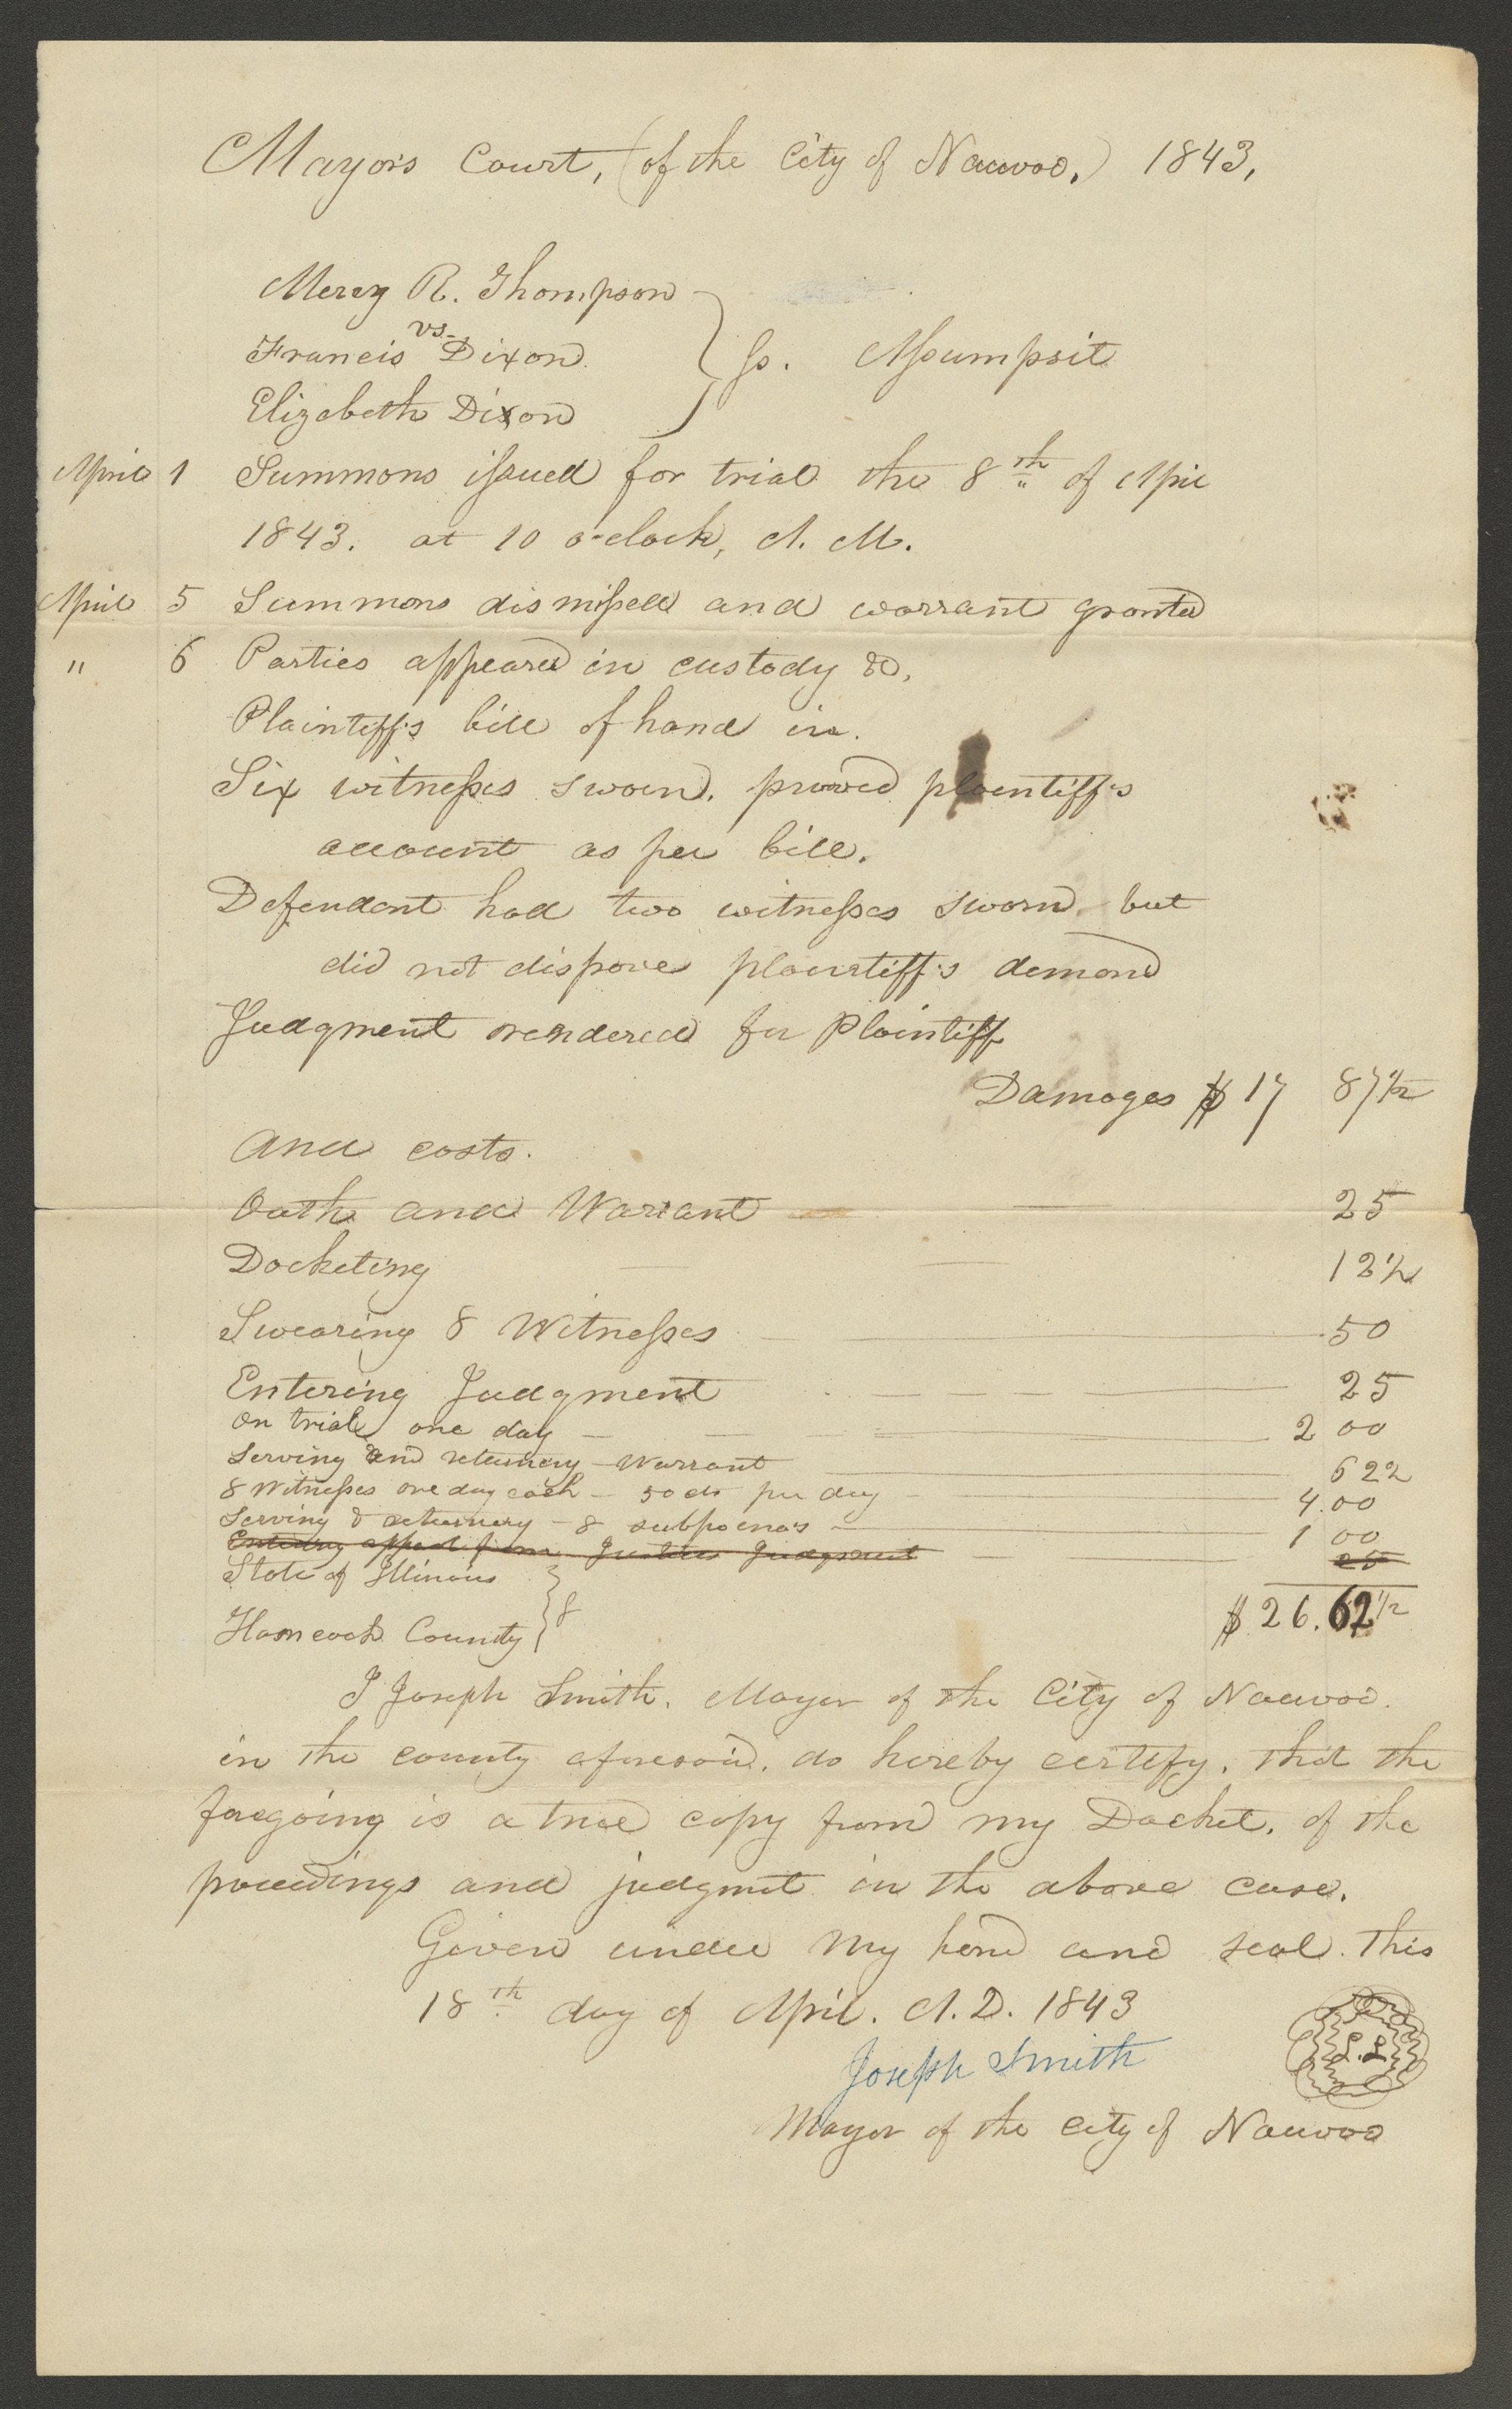 Mayors Court, (of the City of Nauvoo,) 1843,
Mercy R. Thompson
vs.
Francis Dixon } ss. Assumpsit
Elizabeth Dixon
April 1 Summons issued for trial the 8th of Apil
1843. at 10 o-clock, A. M.
April 5 Summons dismissed and warrant granted
" 6 Parties appeared in custody &c,
Plaintiff's bill of hand in.
Six witnesses sworn. prooved plaintiff's
account as per bill.
Defendant had two witnesses sworn. but
did not dispove plaintiff's demand
Judgment rendered for Plaintiff
Damages $ 17 87 1/2
And costs.
Oath and Warrant — 25
Docketing — 12 1/2
Swearing 8 Witnesses — 50
Entering Judgment — 25
On trial one day — 2 00
Serving and returning - Warrant — 62 2
8 Witnesses one day each — 50 cts per day — 4.00
Serving & returning - 8 subpoenas — 1 00
Entering appeal from Justices Judgment — 25
State of Illinois }
Hancock County } $ 26.62 1/2
I Joseph Smith. Mayor of the City of Nauvoo.
in the county aforesaid. do hereby certify. that the
foregoing is a true copy from my Docket. of the
proceedings and judgmet in the above case.
Given under my hand and seal. this
18th day of Apil. A.D. 1843
Joseph Smith
L.S.
Mayor of the City of Nauvoo